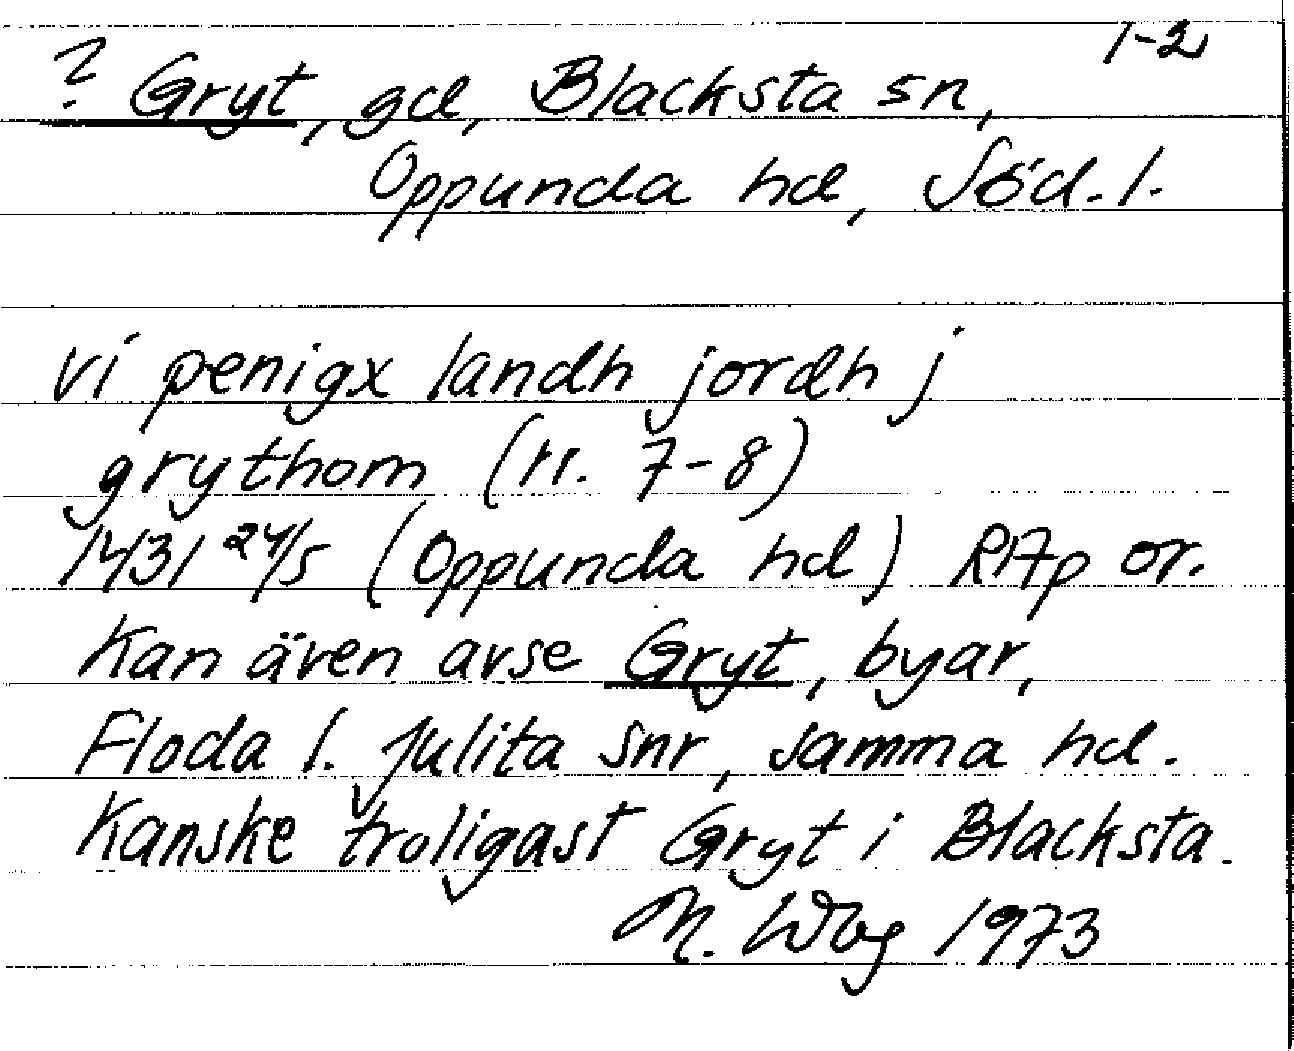 1-2
? Gryt, gd, Blacksta sn,
Oppunda hd, Söd. l.
vi penigx landh jordh j
grythom (rr. 7-8)
1431 24/5 (Oppunda hd) RAp or.
Kan även avse Gryt, byar,
Floda l. Julita snr, samma hd.
Kanske troligast Gryt i Blacksta.
M. Wbg 1973